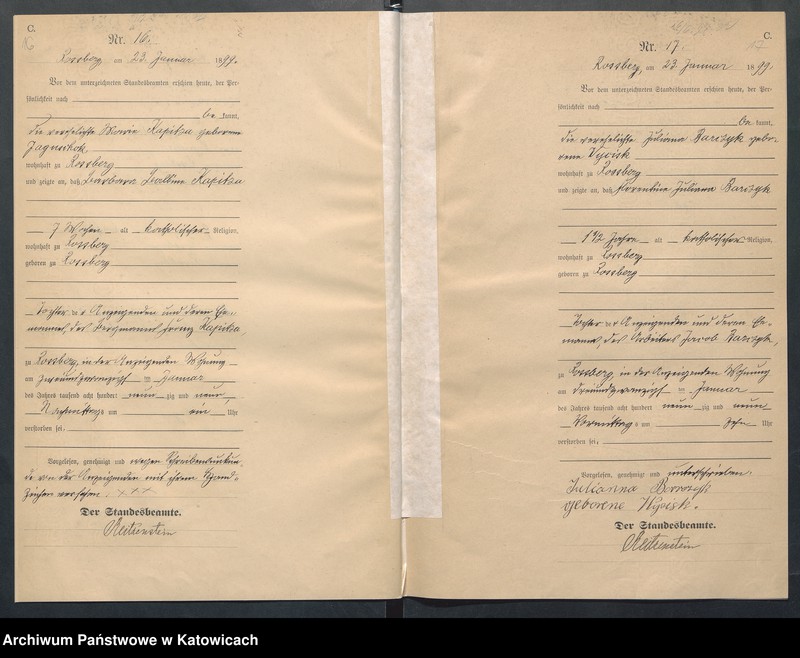 C.
Nr. 16.
Rossberg, am 23. Januar 1899.
Vor dem unterzeichneten Standesbeamten erschien heute, der Per-
sönlichkeit nach
be kannt,
die verehelichte Marie Kapitza geborene
wohnhaft zu Rossberg
und zeigte an, daß Barbara Kapitza
7 Wochen alt katholischer Religion,
wohnhaft zu Rossberg
geboren zu Rossberg
Tochter der Anzeigenden und deren Ehe-
mannes, des Bergmannes Franz Kapitza,
zu Rossberg, in der Anzeigenden Wohnung
am zweiundzwanzigsten Januar
des Jahres tausend acht hundert neun zig und neun,
Nachmittags um ein Uhr
verstorben sei.
Vorgelesen, genehmigt und wegen Schreibensunkun-
de von der Anzeigenden mit ihrem Hand-
zeichen versehen. +++
Der Standesbeamte.
C.
Nr. 17.
Rossberg, am 23. Januar 1899.
Vor dem unterzeichneten Standesbeamten erschien heute, der Per-
sönlichkeit nach
be kannt,
die verehelichte Juliana gebo-
rene
wohnhaft zu Rossberg
und zeigte an, daß Florentine Juliana
1 1/2 Jahre alt katholischer Religion,
wohnhaft zu Rossberg
geboren zu Rossberg
Tochter der Anzeigenden und deren Ehe-
mannes, des Arbeiters Jacob
zu Rossberg, in der Anzeigenden Wohnung
am dreiundzwanzigsten Januar
des Jahres tausend acht hundert neun zig und neun
Vormittags um zehn Uhr
verstorben sei.
Vorgelesen, genehmigt und unterschrieben.
Julianna
geborene
Der Standesbeamte.
Archiwum Państwowe w Katowicach